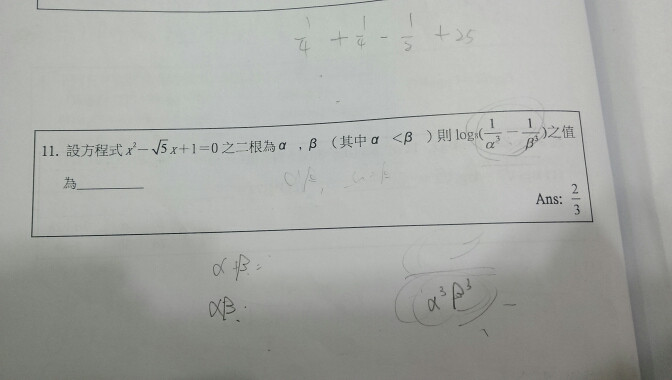 1/4 + 1/4 - 1/5 + 25
11. 設方程式 x²-√5x+1=0 之二根為α , β (其中α <β ) 則 log₈(1/α³ - 1/β³)之值
為________
Ans: 2/3
α+β=
αβ:
α³β³